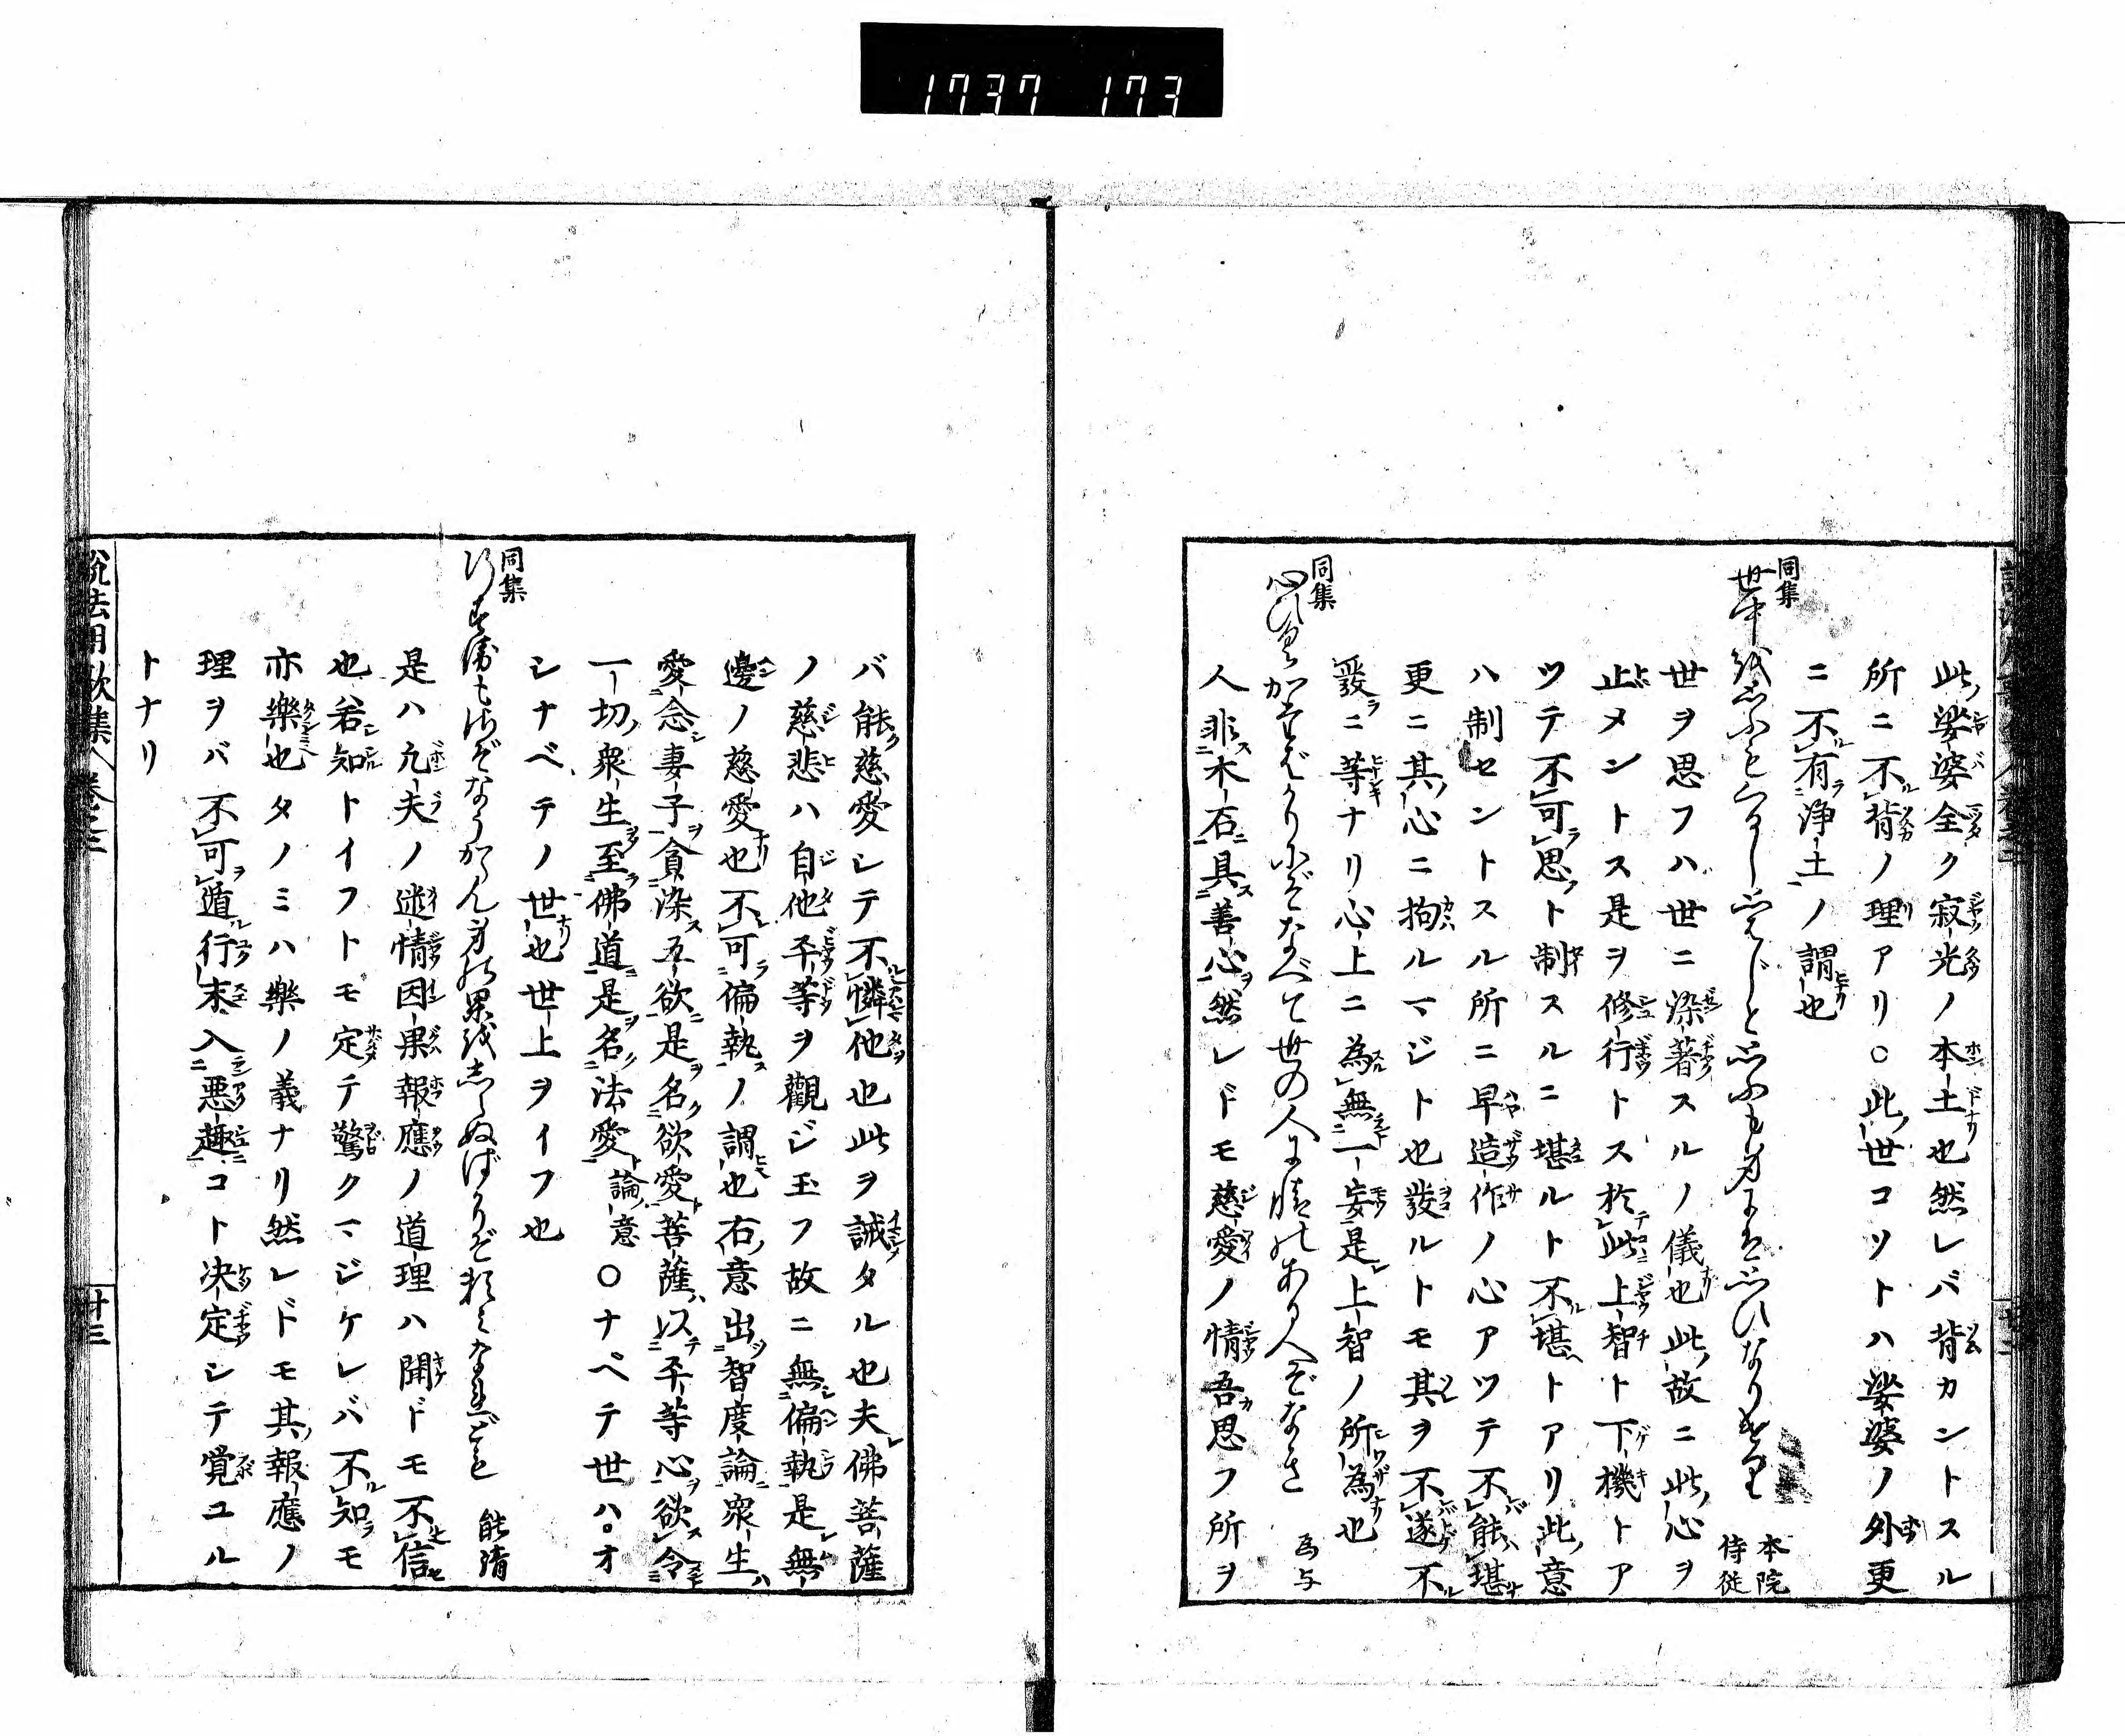 1737 173
此娑婆全ク寂光ノ本土也然レバ背カントスル
所ニ不背ノ理アリ○此世コソトハ娑婆ノ外更
ニ不有浄土ノ謂也
同集
世中を思ふもくるし思はじと思ふも身には思ひなりけり
本院
侍従
世ヲ思フハ世ニ染著スルノ儀也此故ニ此心ヲ
止メントス是ヲ修行トス於此上智ト下機トア
ツテ不可思ト制スルニ堪ルト不堪トアリ此意
ハ制セントスル所ニ早造作ノ心アツテ不能堪
更ニ其心ニ拘ルマジト也發ルトモ其ヲ不遂不
發ニ等ナリ心上ニ為無一妄是上智ノ所為也
同集
かなべて世の人に情のある人ぞなき
為与
人非木石具善心然レドモ慈愛ノ情吾思フ所ヲ
バ能慈愛レテ不憐他也此ヲ誡タル也夫佛菩薩
ノ慈悲ハ自他平等ヲ觀ジ玉フ故ニ無偏執是無
邊ノ慈愛也不可偏執ノ謂也右意出智度論衆生
愛念妻子貪染五欲是名欲愛菩薩以平等心欲令
一切衆生至佛道是名法愛論意○ナペテ世ハ。オ
シナベテノ世也世上ヲイフ也
同集
行すゑ
身の果をしらぬばかりぞ
能清
是ハ凢夫ノ迷情因果報應ノ道理ハ聞ドモ不信
也若知トイフトモ定テ驚クマジケレバ不知モ
亦樂也タノミハ樂ノ義ナリ然レドモ其報應ノ
理ヲバ不可遁行末入悪趣コト决定シテ覚ユル
トナリ
説法用歌集
卷之三
廿三